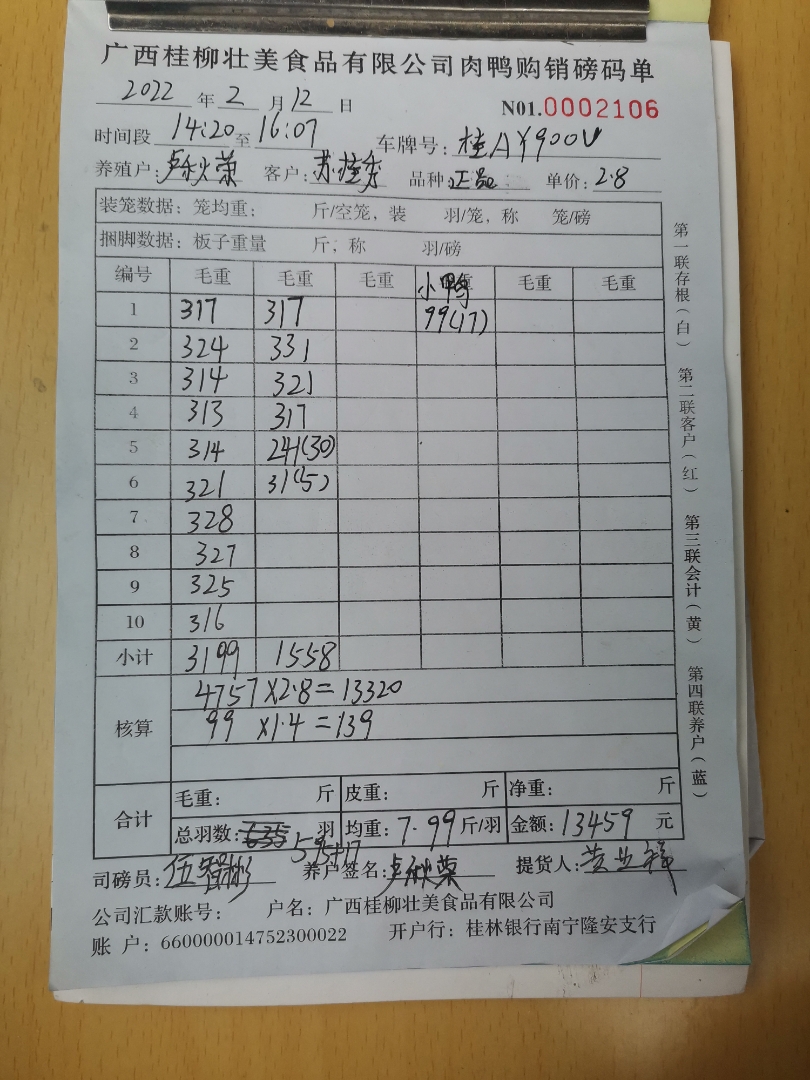 广西桂柳壮美食品有限公司肉鸭购销磅码单
2022 年 2 月 12 日 N01.0002106
时间段 14:20 至 16:07 车牌号: 桂AY900V
养殖户: 卢秋荣 客户: 苏桂秀 品种: 正品 单价: 2.8
装笼数据: 笼均重: 斤/空笼, 装 羽/笼, 称 笼/磅
捆脚数据: 板子重量 斤, 称 羽/磅
编号 毛重 毛重 毛重 小鸭 毛重 毛重
1 317 317 99(17)
2 324 331
3 314 321
4 313 317
5 314 241(30)
6 321 31(5)
7 328
8 327
9 325
10 316
小计 3199 1558
核算 4757×2.8=13320
99 ×1.4=139
合计 毛重: 斤 皮重: 斤 净重: 斤
总羽数: 羽 均重: 7.99 斤/羽 金额: 13459 元
595+17
司磅员: 伍智彬 养户签名: 卢秋荣 提货人: 黄业祥
公司汇款账号: 户名: 广西桂柳壮美食品有限公司
账 户: 660000014752300022 开户行: 桂林银行南宁隆安支行
第一联存根(白) 第二联客户(红) 第三联会计(黄) 第四联养户(蓝)